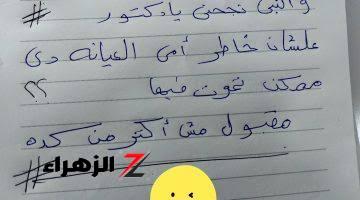 والنبى نجحنى يا دكتور #
علشان خاطر أمى العيانه دى
ممكن تموت فيها ؟؟
مقبول مش أكتر من كده
#
الزهراء